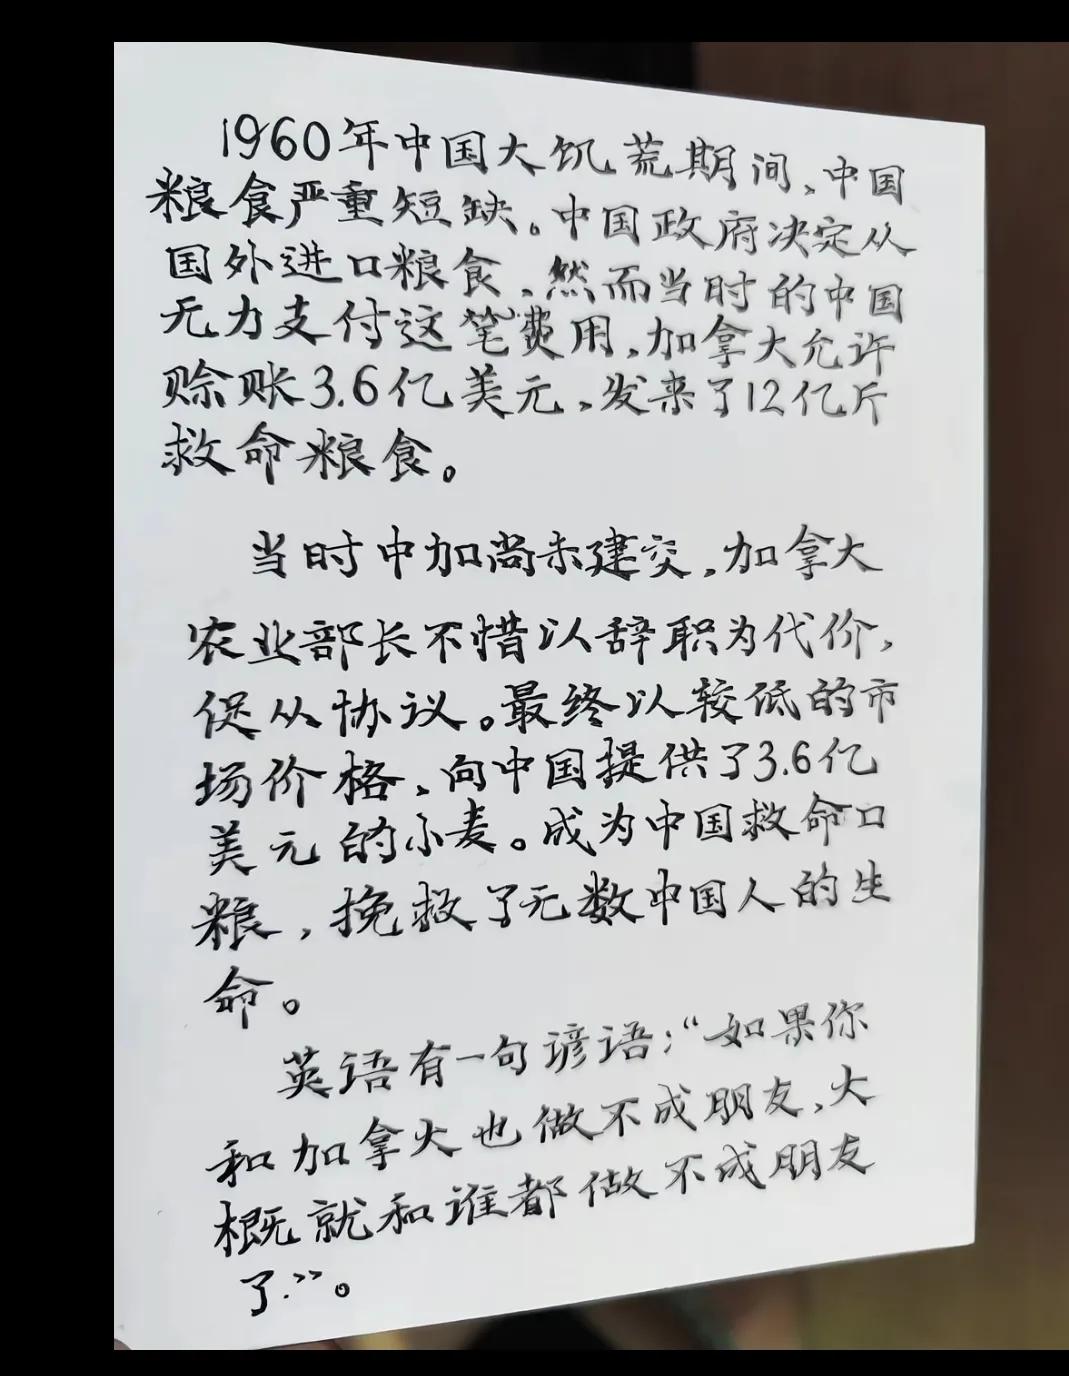 1960年中国大饥荒期间、中国
粮食严重短缺。中国政府决定从
国外进口粮食、然而当时的中国
无力支付这笔费用,加拿大允许
赊账3.6亿美元、发来了12亿斤
救命粮食。
当时中加尚未建交,加拿大
农业部长不惜以辞职为代价,
促从协议。最终以较低的市
场价格、向中国提供了3.6亿
美元的小麦。成为中国救命口
粮,挽救了无数中国人的生
命。
英语有一句谚语:“如果你
和加拿大也做不成朋友,大
概就和谁都做不成朋友
了.”。